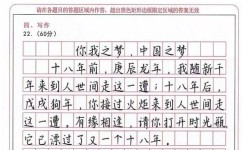 请在各题目的答题区域内作答，超出黑色矩形边框限定区域的答案无效
四、写作
22.（60分）
你我之梦，中国之梦
十八年前，庚辰龙年，我随新千
年来到人世间走这一遭；十八年后，
戊戌狗年，你接过火炬来到人世间走
这一遭，有缘相逢，请你打开时光瓶，
它已漂过了又一个十八年。